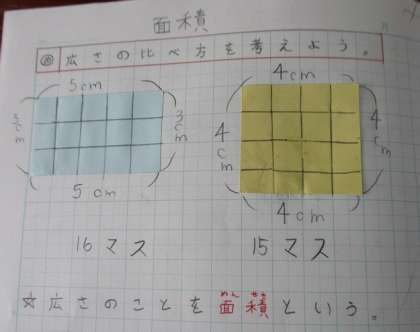 面積
め 広さの比べ方を考えよう。
5cm 4cm
3cm 3cm 4cm 4cm
5cm 4cm
16マス 15マス
めん せき
☆広さのことを面積という。